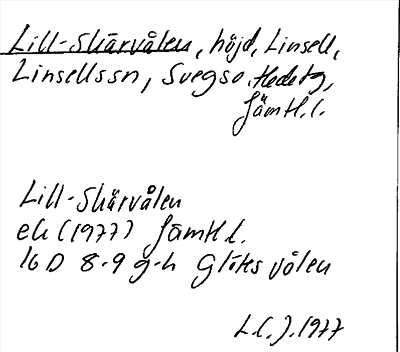 Lill-Skärvålen, höjd, Linsell,
Linsellssn, Svegs
Jämtl.l.
Lill-Skärvålen
ek (1977) Jämtl l.
16D 8-9 g-h Glötesvålen
L.C.J. 1977